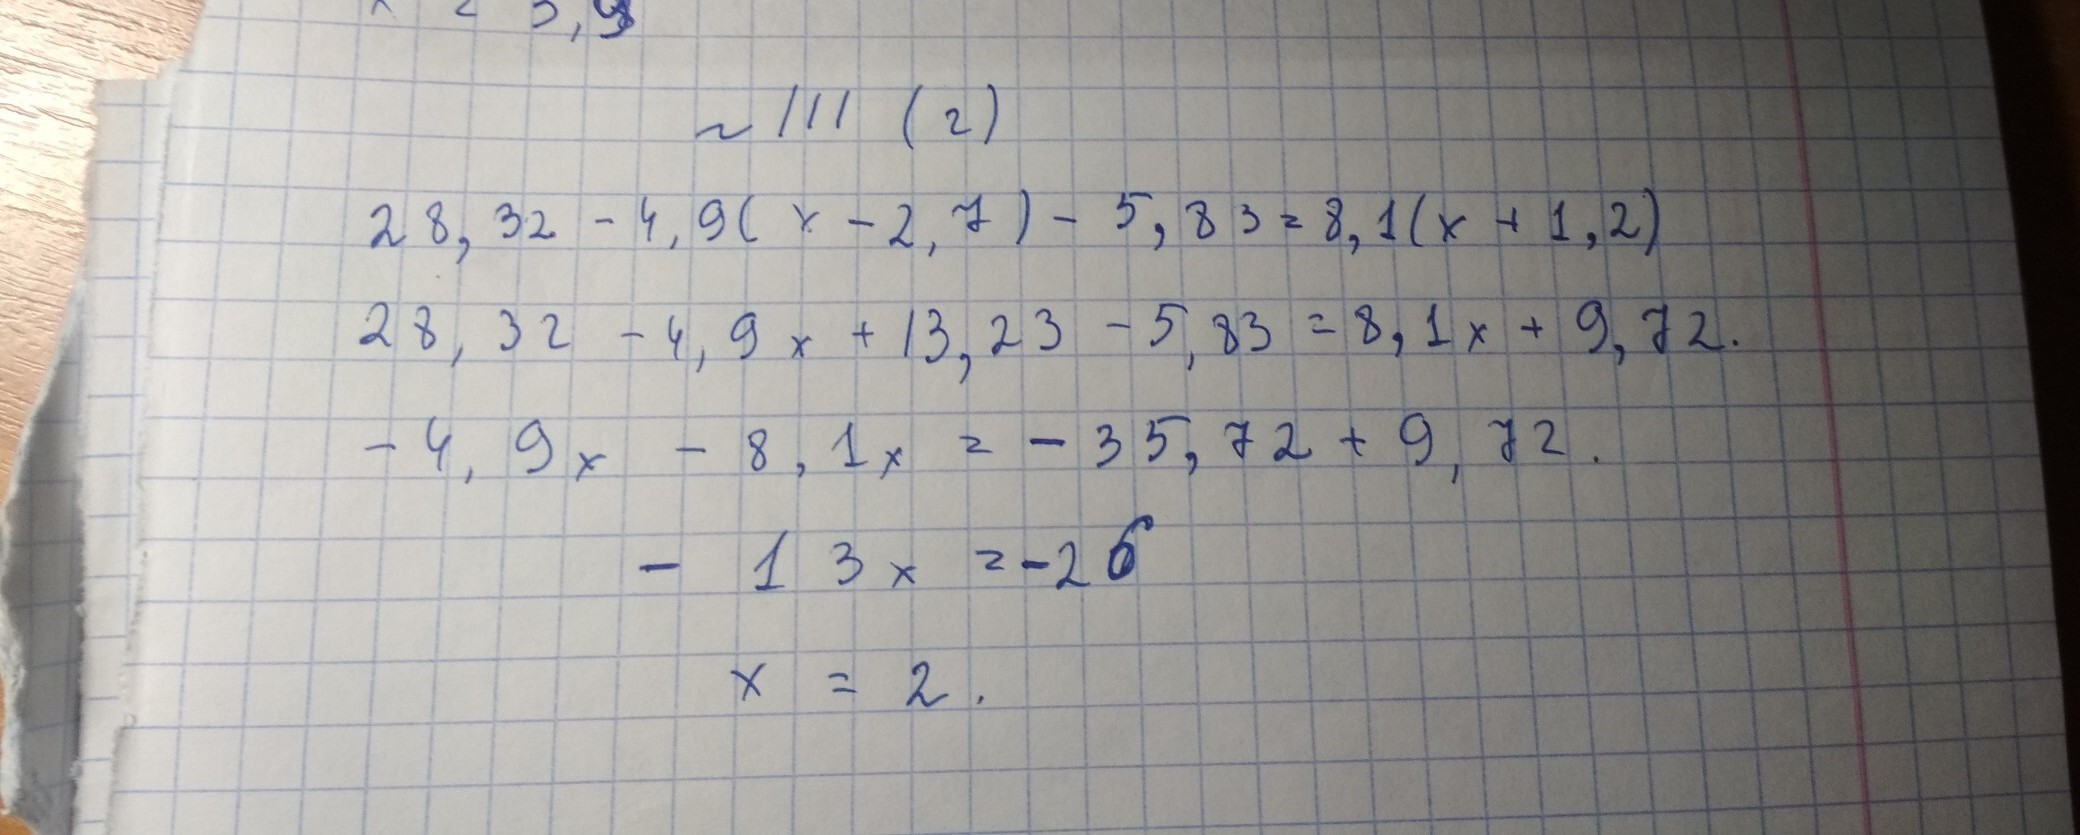 ~ 111 (г)
28,32 - 4,9(x - 2,7) - 5,83 = 8,1(x + 1,2)
28,32 - 4,9x + 13,23 - 5,83 = 8,1x + 9,72.
- 4,9x - 8,1x = - 35,72 + 9,72.
- 13x = -26
x = 2.